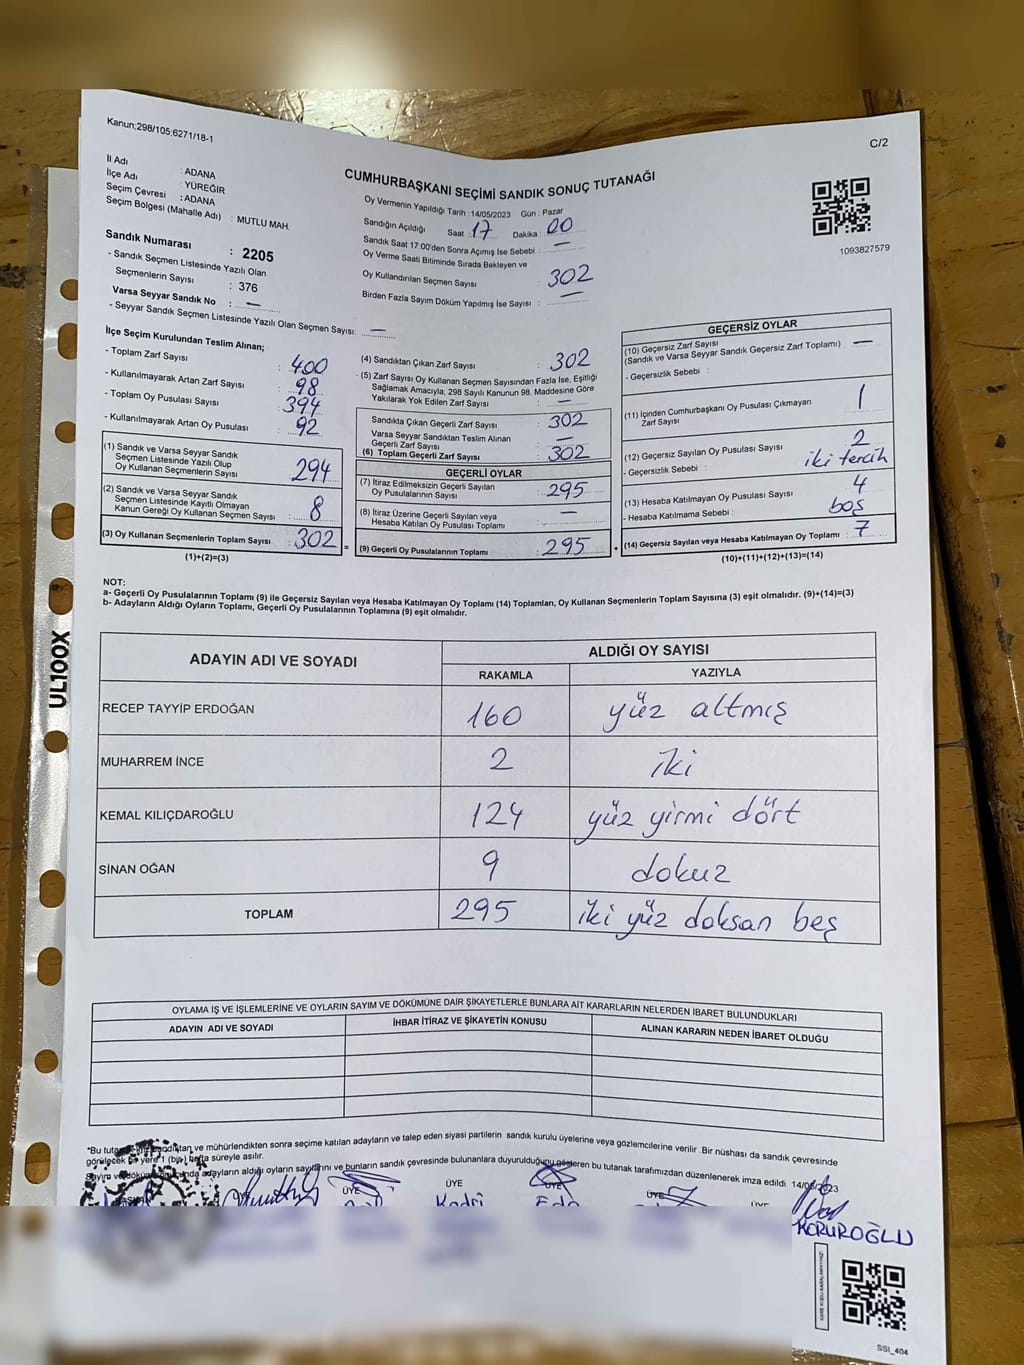 Kanun;298/105;6271/18-1
C/2
CUMHURBAŞKANI SEÇİMİ SANDIK SONUÇ TUTANAĞI
İl Adı : ADANA
İlçe Adı : YÜREĞİR
Seçim Çevresi : ADANA
Seçim Bölgesi (Mahalle Adı) : MUTLU MAH.
Sandık Numarası : 2205
- Sandık Seçmen Listesinde Yazılı Olan
Seçmenlerin Sayısı : 376
Varsa Seyyar Sandık No : —
- Seyyar Sandık Seçmen Listesinde Yazılı Olan Seçmen Sayısı: —
Oy Vermenin Yapıldığı Tarih : 14/05/2023 Gün : Pazar
Sandığın Açıldığı Saat : 17 Dakika : 00
Sandık Saat 17:00'den Sonra Açımış İse Sebebi : —
Oy Verme Saati Bitiminde Sırada Bekleyen ve
Oy Kullandırılan Seçmen Sayısı : 302
Birden Fazla Sayım Döküm Yapılmış İse Sayısı : —
1093827579
İlçe Seçim Kurulundan Teslim Alınan;
- Toplam Zarf Sayısı : 400
- Kullanılmayarak Artan Zarf Sayısı : 98
- Toplam Oy Pusulası Sayısı : 394
- Kullanılmayarak Artan Oy Pusulası : 92
(1) Sandık ve Varsa Seyyar Sandık
Seçmen Listesinde Yazılı Olup
Oy Kullanan Seçmenlerin Sayısı : 294
(2) Sandık ve Varsa Seyyar Sandık
Seçmen Listesinde Kayıtlı Olmayan
Kanun Gereği Oy Kullanan Seçmen Sayısı : 8
(3) Oy Kullanan Seçmenlerin Toplam Sayısı : 302
(1)+(2)=(3)
=
(4) Sandıktan Çıkan Zarf Sayısı : 302
(5) Zarf Sayısı Oy Kullanan Seçmen Sayısından Fazla İse, Eşitliği
Sağlamak Amacıyla, 298 Sayılı Kanunun 98. Maddesine Göre
Yakılarak Yok Edilen Zarf Sayısı : —
Sandıkta Çıkan Geçerli Zarf Sayısı : 302
Varsa Seyyar Sandıktan Teslim Alınan
Geçerli Zarf Sayısı : —
(6) Toplam Geçerli Zarf Sayısı : 302
GEÇERLİ OYLAR
(7) İtiraz Edilmeksizin Geçerli Sayılan
Oy Pusulalarının Sayısı : 295
(8) İtiraz Üzerine Geçerli Sayılan veya
Hesaba Katılan Oy Pusulası Toplamı : —
(9) Geçerli Oy Pusulalarının Toplamı : 295
+
GEÇERSİZ OYLAR
(10) Geçersiz Zarf Sayısı
(Sandık ve Varsa Seyyar Sandık Geçersiz Zarf Toplamı) —
- Geçersizlik Sebebi :
(11) İçinden Cumhurbaşkanı Oy Pusulası Çıkmayan
Zarf Sayısı 1
(12) Geçersiz Sayılan Oy Pusulası Sayısı 2
- Geçersizlik Sebebi : iki tercih
(13) Hesaba Katılmayan Oy Pusulası Sayısı 4
- Hesaba Katılmama Sebebi : boş
(14) Geçersiz Sayılan veya Hesaba Katılmayan Oy Toplamı : 7
(10)+(11)+(12)+(13)=(14)
NOT:
a- Geçerli Oy Pusulalarının Toplamı (9) ile Geçersiz Sayılan veya Hesaba Katılmayan Oy Toplamı (14) Toplamları, Oy Kullanan Seçmenlerin Toplam Sayısına (3) eşit olmalıdır. (9)+(14)=(3)
b- Adayların Aldığı Oyların Toplamı, Geçerli Oy Pusulalarının Toplamına (9) eşit olmalıdır.
ADAYIN ADI VE SOYADI
ALDIĞI OY SAYISI
RAKAMLA YAZIYLA
RECEP TAYYİP ERDOĞAN 160 yüz altmış
MUHARREM İNCE 2 iki
KEMAL KILIÇDAROĞLU 124 yüz yirmi dört
SİNAN OĞAN 9 dokuz
TOPLAM 295 iki yüz doksan beş
OYLAMA İŞ VE İŞLEMLERİNE VE OYLARIN SAYIM VE DÖKÜMÜNE DAİR ŞİKAYETLERLE BUNLARA AİT KARARLARIN NELERDEN İBARET BULUNDUKLARI
ADAYIN ADI VE SOYADI İHBAR İTİRAZ VE ŞİKAYETİN KONUSU ALINAN KARARIN NEDEN İBARET OLDUĞU
*Bu ve mühürlendikten sonra seçime katılan adayların ve talep eden siyasi partilerin sandık kurulu üyelerine veya gözlemcilerine verilir .Bir nüshası da sandık çevresinde
görülecek bir yere 1 (bir) hafta süreyle asılır.
adayların aldığı oyların sayılarını ve bunların sandık çevresinde bulunanlara duyurulduğunu gösteren bu tutanak tarafımızdan düzenlenerek imza edildi. 14/05/2023
ÜYE ÜYE ÜYE ÜYE ÜYE
Kadri Eda
KORUROĞLU
SSI_404
UL100X